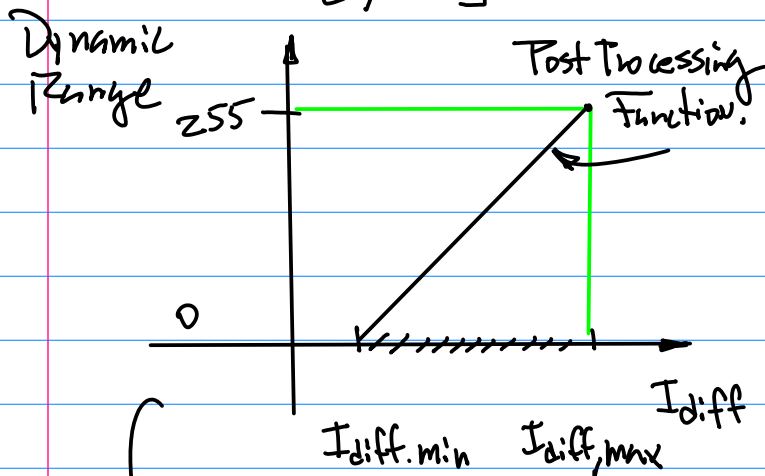 Dynamic
Range
255
Post Processing
Function.
0
I diff
I diff.min
I diff,max